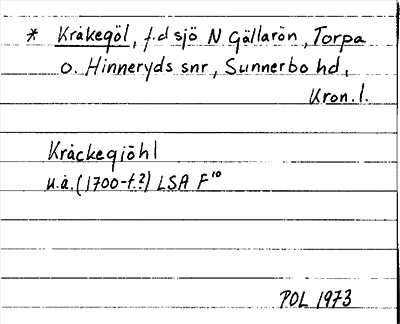 * Kråkegöl, f.d sjö N Gällarön, Torpa
o. Hinneryds snr, Sunnerbo hd,
Kron. l.
Kråckegiöhl
u.å. (1700-t.?) LSA F¹⁰
POL 1973